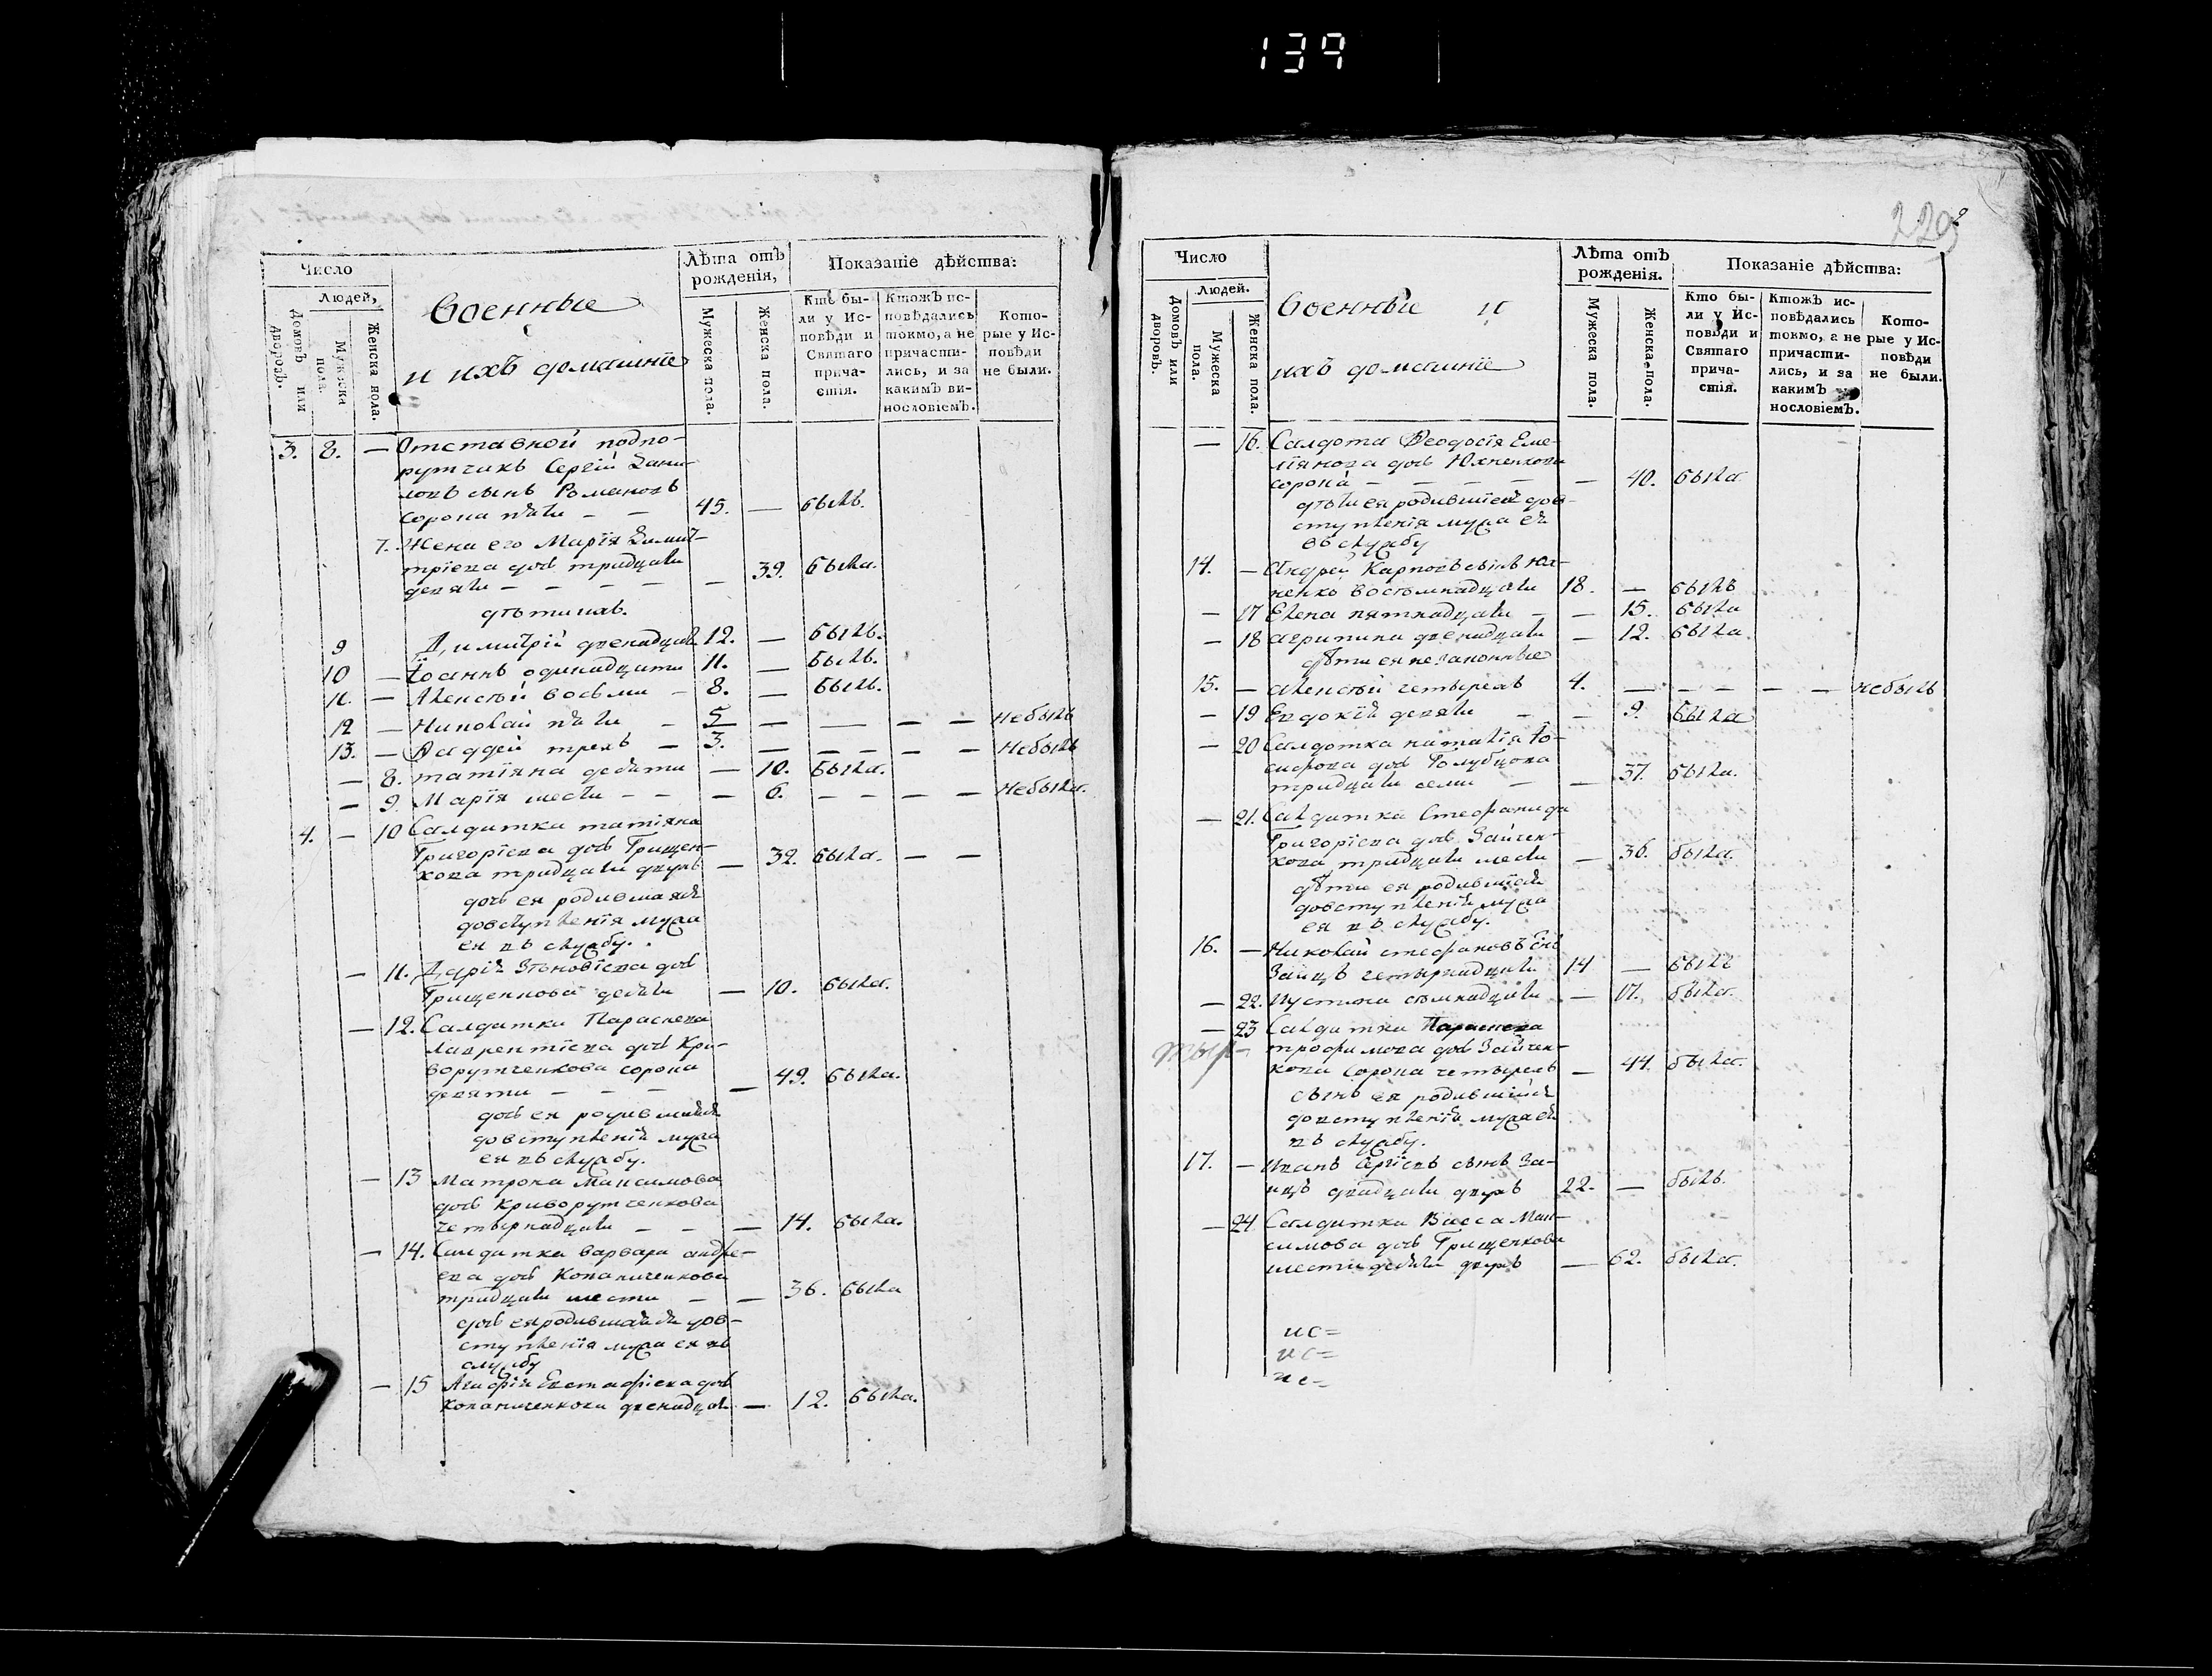 139
Число
Людей,
Домовъ или дворовъ.
Мужеска пола.
Женска пола.
Военные
и ихъ домашніе
Лѣта отъ рожденія,
Мужеска пола.
Женска пола.
Показаніе дѣйства:
Кто бы-
ли у Ис-
повѣди и
Святаго
прича-
стія.
Ктожъ ис-
повѣдались
токмо, а не
причасти-
лись, и за
какимъ ви-
нословіемъ.
Кото-
рые у Ис-
повѣди
не были.
3. 8. — Отставной подпо-
рутчикъ Сергій Дани-
ловъ сынъ Романовъ
сорока пяти — — 45. — былъ.
7. Жена его Марія Дими-
тріева дочь тридцати
девяти — — — — — 39. была.
дѣти ихъ.
9 Димитрій двенадцати 12. — былъ.
10 — Іоаннъ одинадцати 11. — былъ.
11. — Алексѣй восьми — 8. — былъ.
12 — Николай пяти — 5 — — — — небылъ
13. — Фаддей трехъ — 3. — — — — — небылъ
— 8. татіяна десяти — 10. была.
— 9. Марія шести — — — 6. — — — — небыла.
4. — 10 Салдатка татіяна
Григоріева дочь Грищен-
кова тридцати двухъ — 32. была. — —
дочь ея родившаяся
до вступленія мужа
ея въ службу.
— 11. Дарія Зѣновіева дочь
Грищенкова десяти — 10. была.
— 12. Салдатка Параскева
Лаврентіева дочь Кри-
ворутченкова сорока
девяти — — — — 49. была.
дочь ея родившаяся
до вступленія мужа
ея въ службу.
— 13 Матрона Максимова
дочь Криворутченкова
четырнадцати — — — 14. была.
— 14. Салдатка варвара андре-
ева дочь Копаниченкова
тридцати шести — — 36. была
дочь ея родившаяся до в-
ступленія мужа ея въ
службу
— 15 Агафія Евстафіева дочь
Копаниченкова двенадцати — 12. была.
229
Число
Людей.
Домовъ или дворовъ.
Мужеска пола.
Женска пола.
Военные и
ихъ домашніе
Лѣта отъ рожденія.
Мужеска пола.
Женска пола.
Показаніе дѣйства:
Кто бы-
ли у Ис-
повѣди и
Святаго
прича-
стія.
Ктож ис-
повѣдались
токмо, а не
причасти-
лись, и за
какимъ
нословіемъ.
Кото-
рые у Ис-
повѣди
не были.
— 16. Салдата Феодосія Еме-
ліянова дочь Юхненкова
сорока — — — — — 40. была
дѣти ея родившіеся до в-
ступленія мужа ея
въ службу
14. — Андрей Карповъ сынъ Юх-
ненко восемнадцати 18. — былъ
— 17 Елена пятнадцати — — 15. была
— 18 агрипина двенадцати — 12. была
дѣти ея незаконные
15. — алексѣй четырехъ 4. — — — — — небылъ
— 19 Евдокія девяти — — 9. была
— 20 Салдатка наталія Іо-
сифова дочь Голубцова
тридцати семи — — 37. была.
— 21. Салдатка Стефанида
Григоріева дочь Зайчен-
кова тридцати шести — 36. была.
дѣти ея родившіеся
до вступленія мужа
ея въ службу.
16. — Николай стефановъ снъ
Заицъ четырнадцати 14 — былъ
— 22. Иустина семнадцати — 17. была.
— 23 Салдатка Параскева
трофимова дочь Зайчен-
кова сорока четырехъ — 44. была.
сынъ ея родившійся
до вступленія мужа ея
въ службу.
17. — Иванъ Сергіевъ сынъ За-
ицъ двадцати двухъ 22. — былъ.
— 24 Салдатка Васса Мак-
симова дочь Грищенкова
шестидесяти двухъ — 62. была.
ис=
ис=
ис=